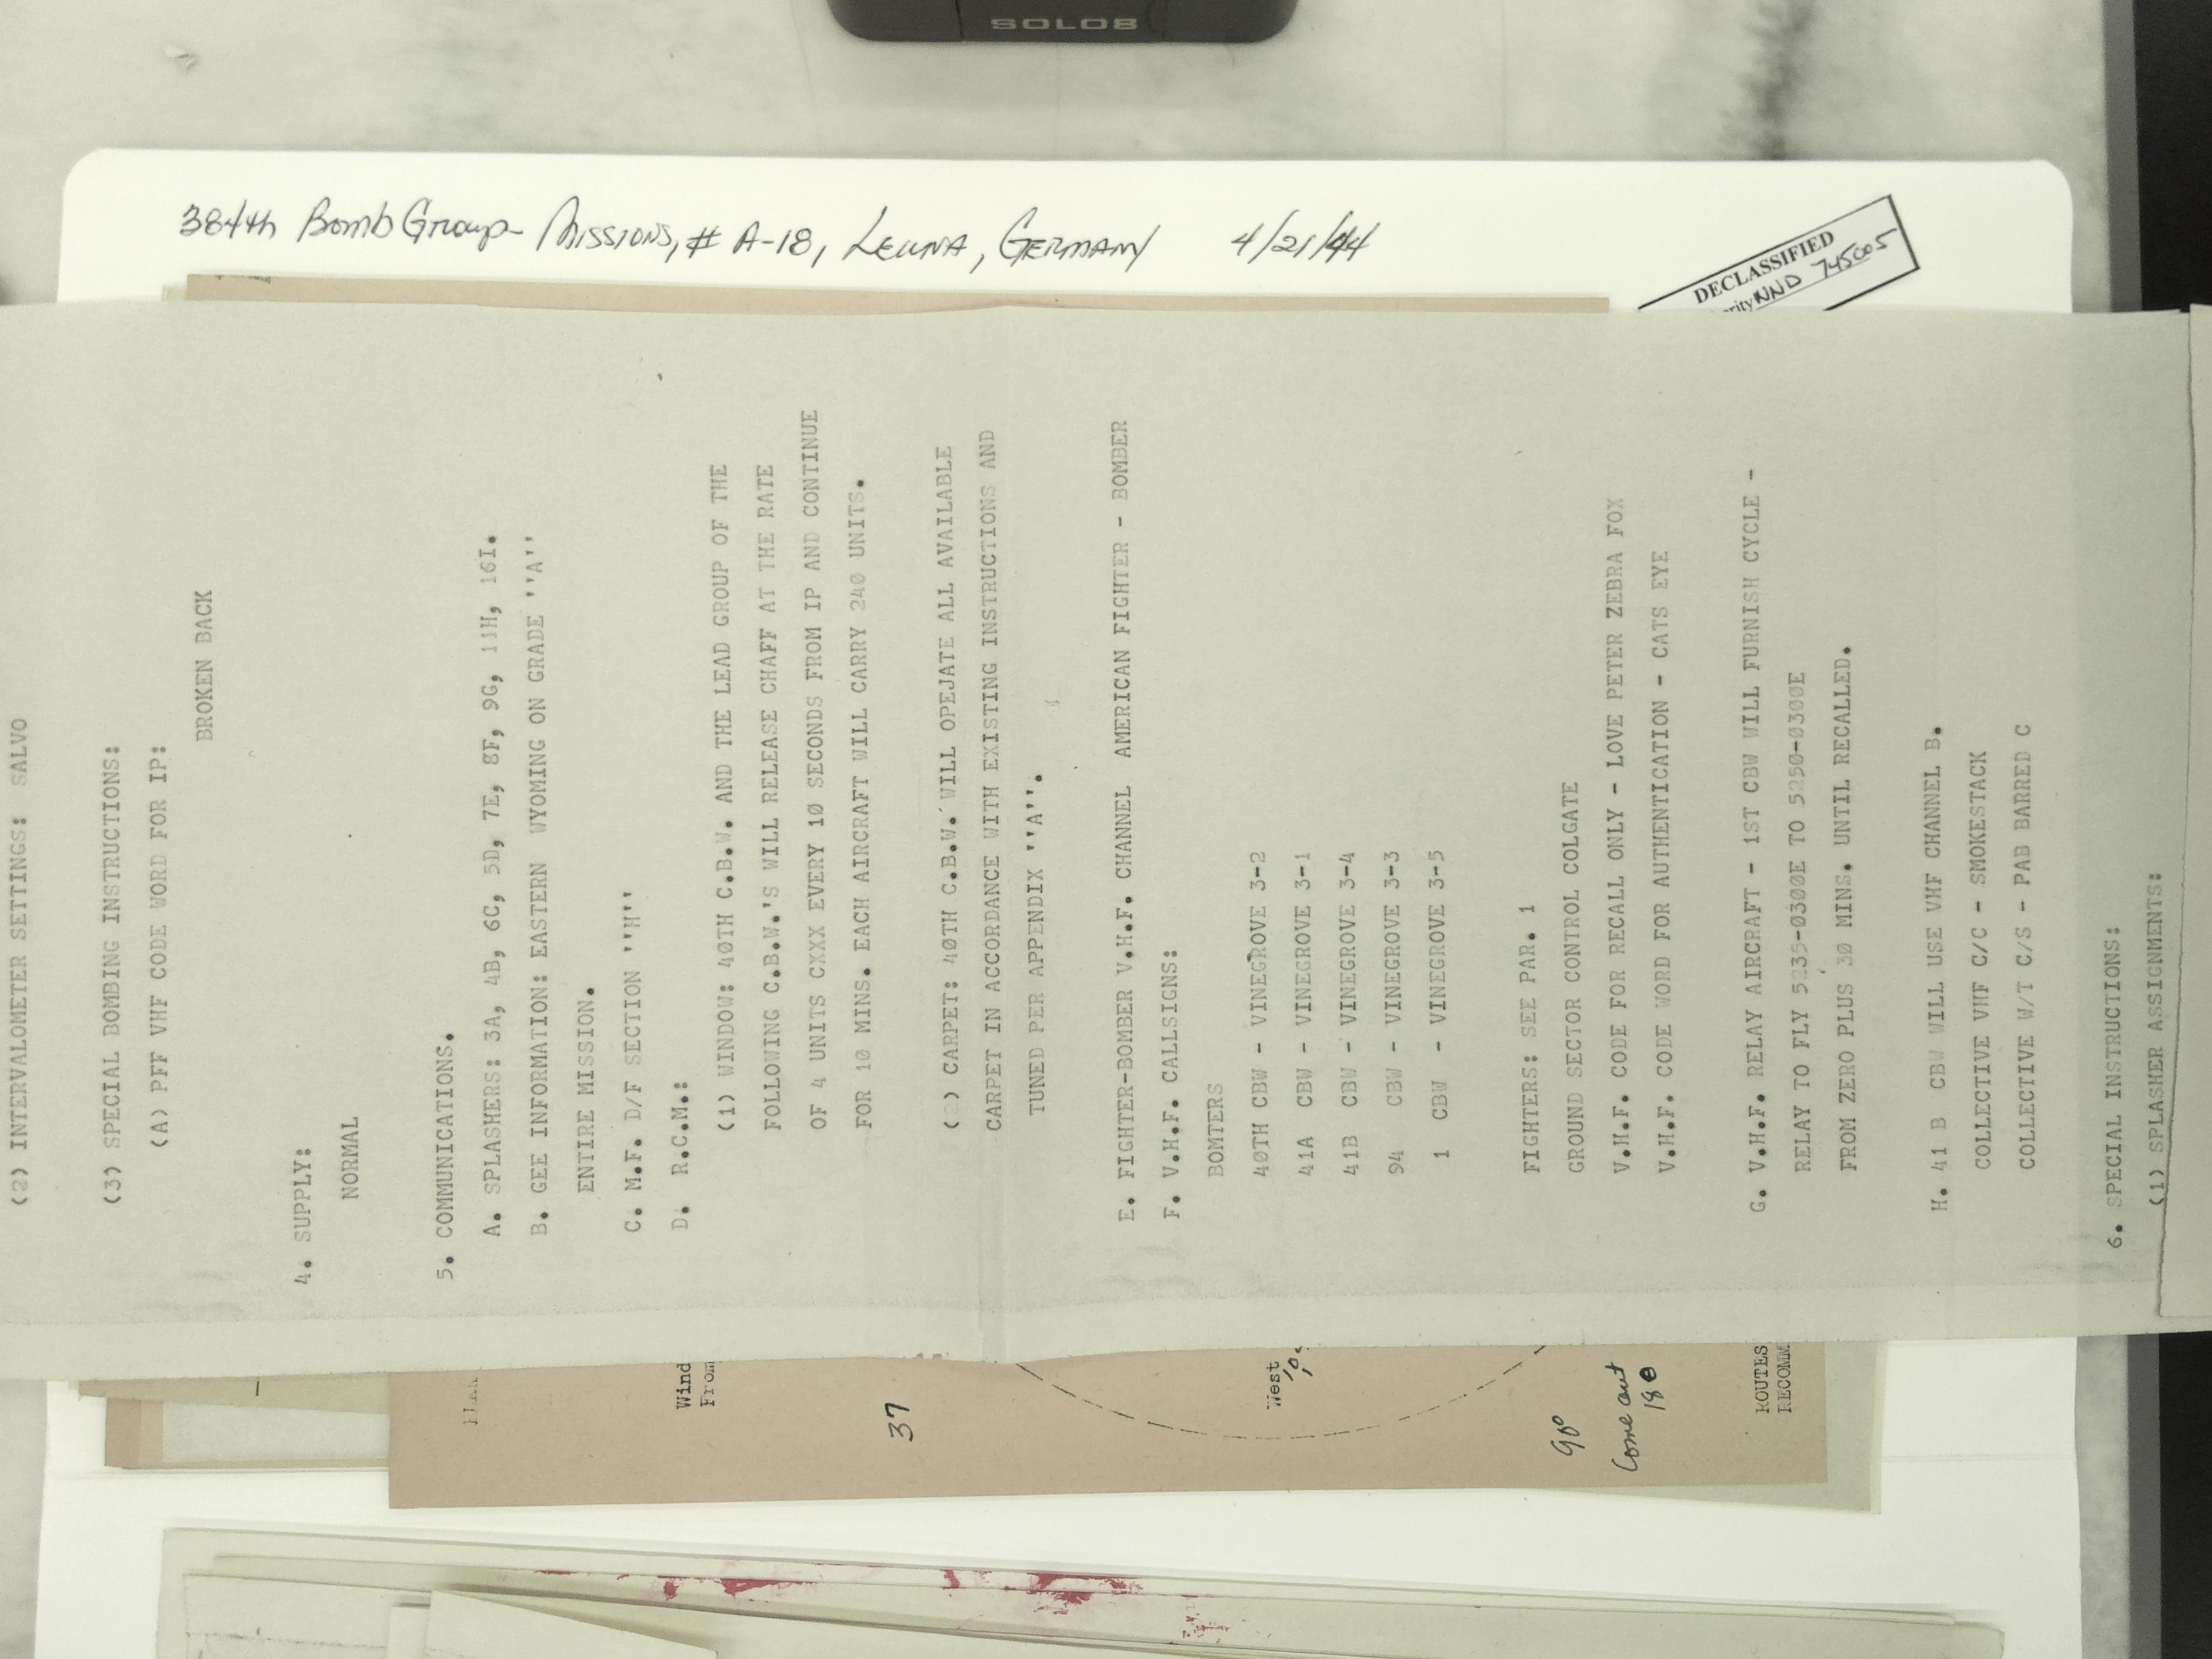 SOLO8
384th Bomb Group- Missions, # A-18, Leuna, Germany 4/21/44
DECLASSIFIED
NND 745005
(2) INTERVALOMETER SETTINGS: SALVO
(3) SPECIAL BOMBING INSTRUCTIONS:
(A) PFF VHF CODE WORD FOR IP:
BROKEN BACK
4. SUPPLY:
NORMAL
5. COMMUNICATIONS.
A. SPLASHERS: 3A, 4B, 6C, 5D, 7E, 8F, 9G, 11H, 16I.
B. GEE INFORMATION: EASTERN WYOMING ON GRADE ''A''
ENTIRE MISSION.
C. M.F. D/F SECTION ''H''
D. R.C.M.:
(1) WINDOW: 40TH C.B.W. AND THE LEAD GROUP OF THE
FOLLOWING C.B.W.'S WILL RELEASE CHAFF AT THE RATE
OF 4 UNITS CXXX EVERY 10 SECONDS FROM IP AND CONTINUE
FOR 10 MINS. EACH AIRCRAFT WILL CARRY 240 UNITS.
(2) CARPET: 40TH C.B.W. WILL OPEJATE ALL AVAILABLE
CARPET IN ACCORDANCE WITH EXISTING INSTRUCTIONS AND
TUNED PER APPENDIX ''A''.
E. FIGHTER-BOMBER V.H.F. CHANNEL AMERICAN FIGHTER - BOMBER
F. V.H.F. CALLSIGNS:
BOMTERS
40TH CBW - VINEGROVE 3-2
41A CBW - VINEGROVE 3-1
41B CBW - VINEGROVE 3-4
94 CBW - VINEGROVE 3-3
1 CBW - VINEGROVE 3-5
FIGHTERS: SEE PAR. 1
GROUND SECTOR CONTROL COLGATE
V.H.F. CODE FOR RECALL ONLY - LOVE PETER ZEBRA FOX
V.H.F. CODE WORD FOR AUTHENTICATION - CATS EYE
G. V.H.F. RELAY AIRCRAFT - 1ST CBW WILL FURNISH CYCLE -
RELAY TO FLY 5235-0300E TO 5250-0300E
FROM ZERO PLUS 30 MINS. UNTIL RECALLED.
H. 41 B CBW WILL USE VHF CHANNEL B.
COLLECTIVE VHF C/C - SMOKESTACK
COLLECTIVE W/T C/S - PAB BARRED C
6. SPECIAL INSTRUCTIONS:
(1) SPLASHER ASSIGNMENTS:
Wind
From
37
West
90°
Come out
180
ROUTES
RECOMM